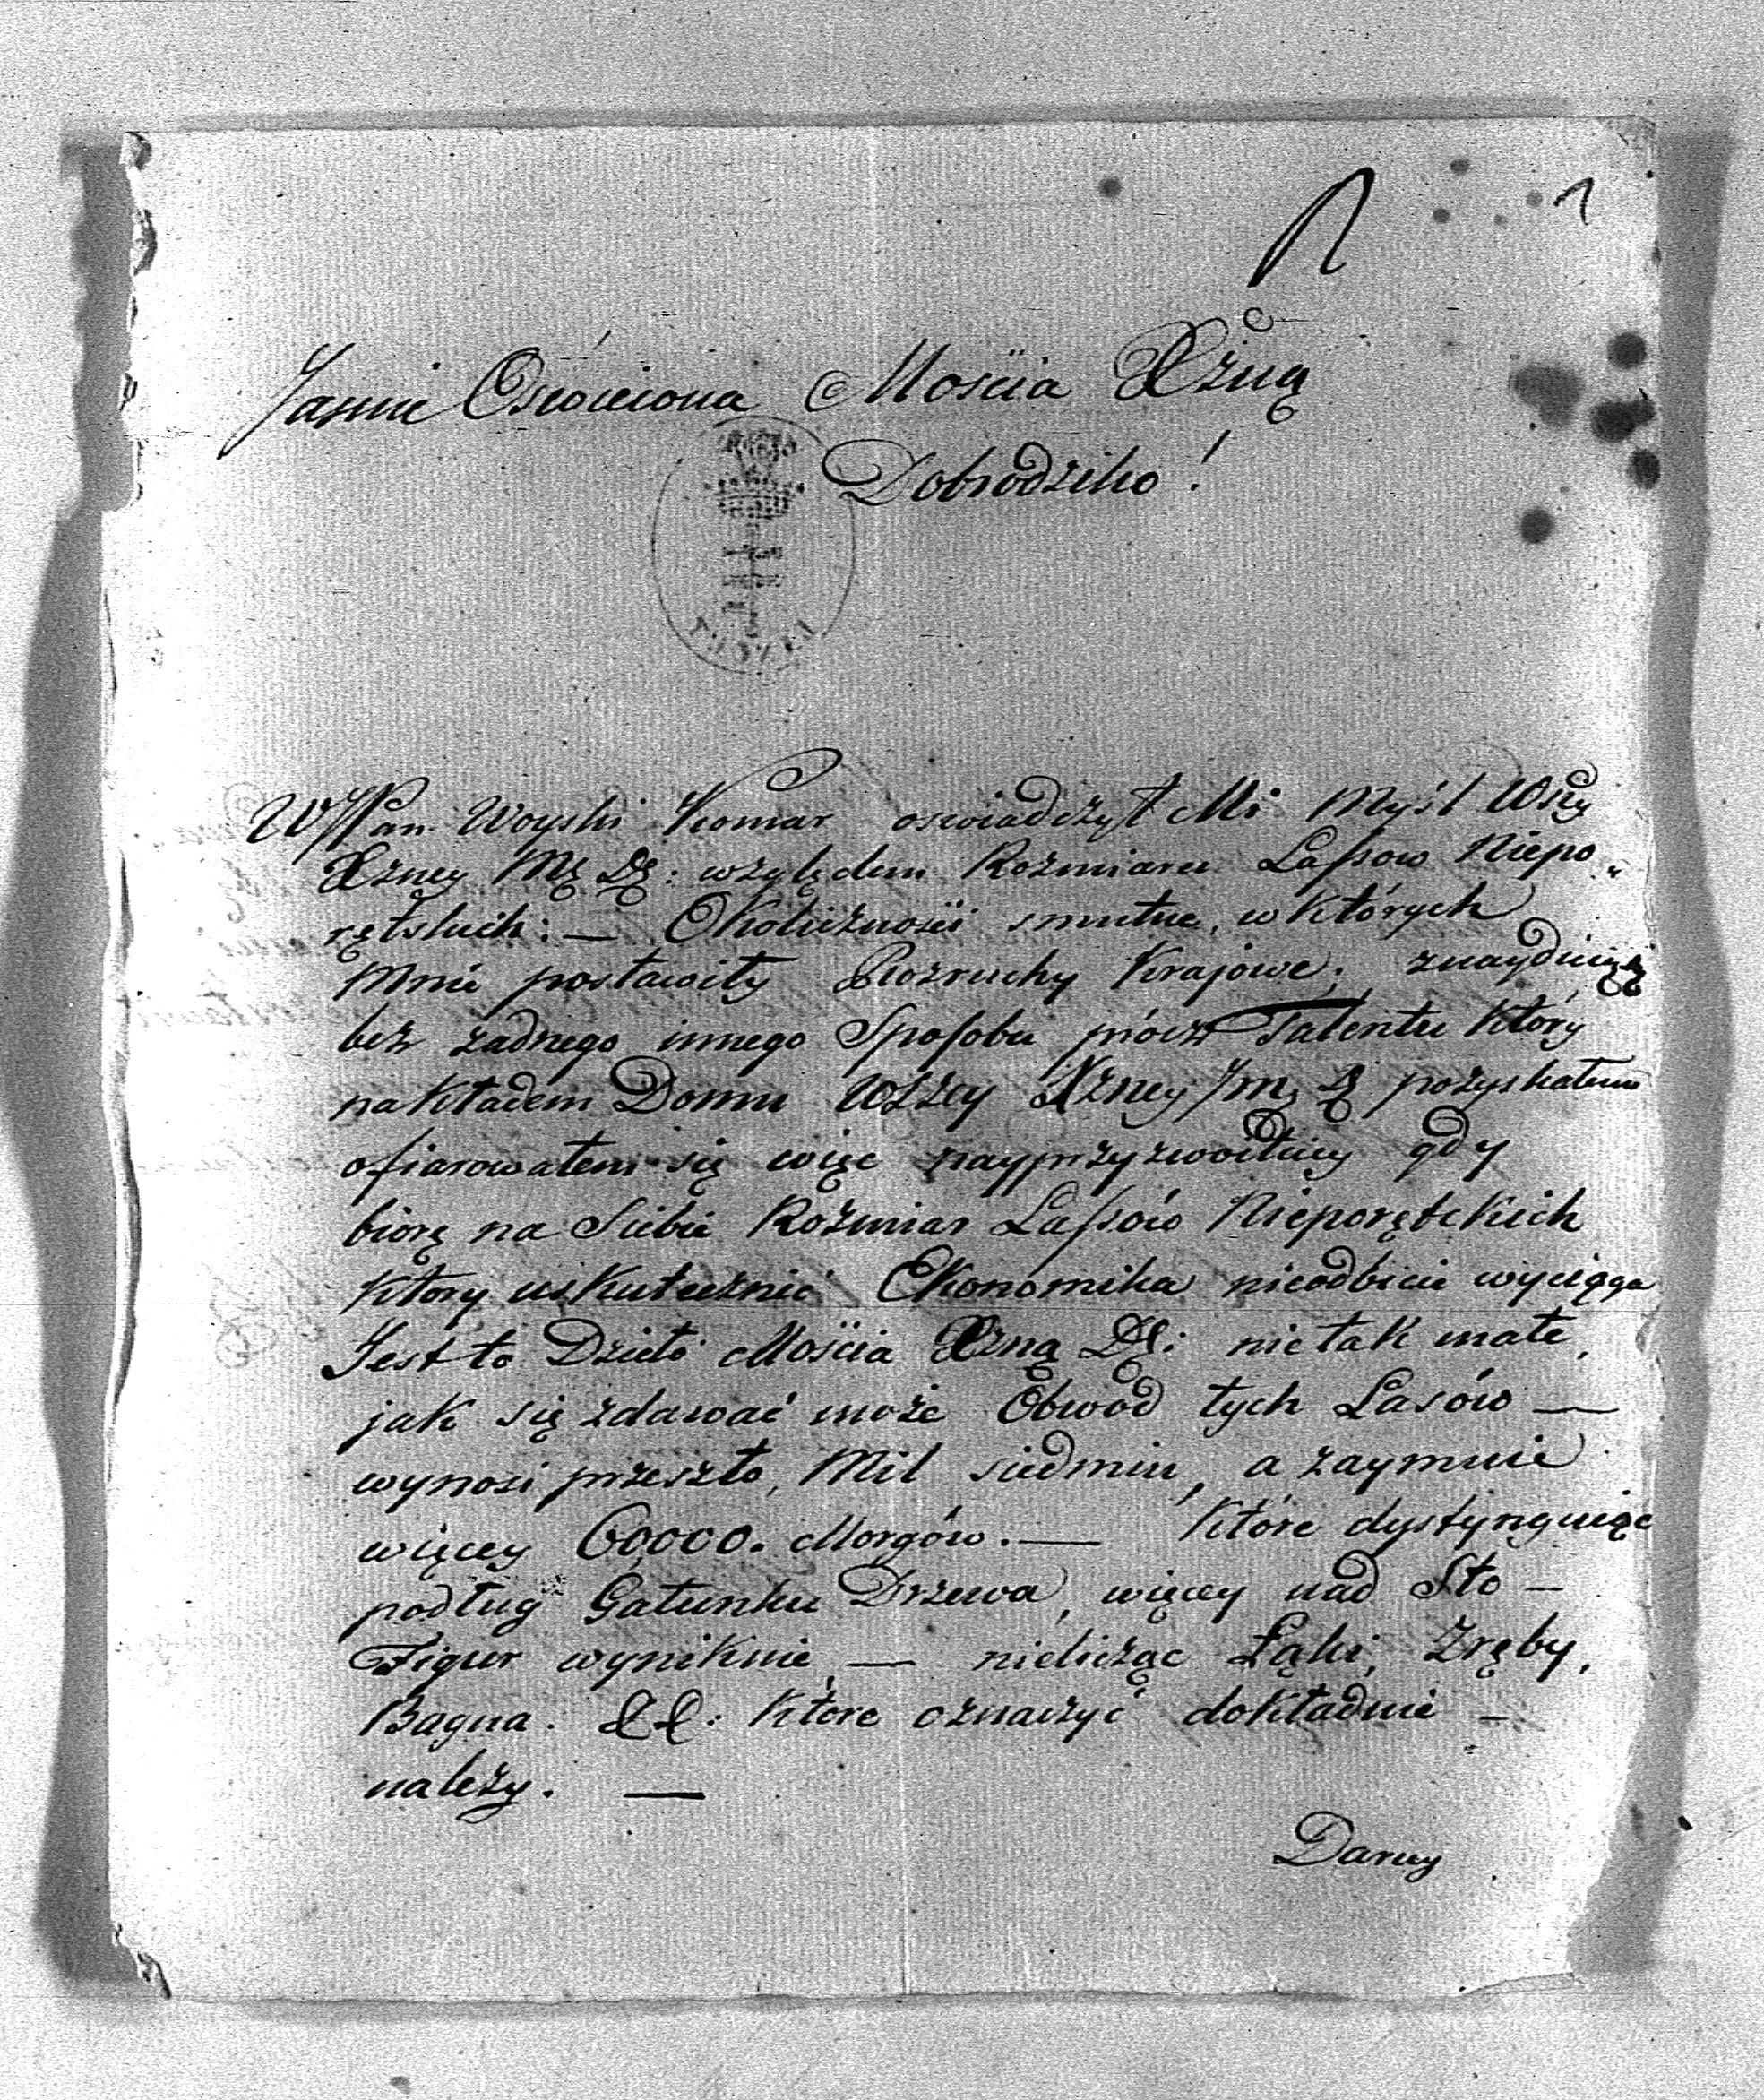 1
Jaśnie Oświeciona Mościa Xżną
Dobrodziko!
WJPan Woyski Komar oswiadczył Mi Myśl WXcy
Xżney Mę Dę: względem Rozmiaru Lassow Niepo„
rętskich: — Okolicznosci smutne, w których
Mnie postawiły Rozruchy Krajowe; znayduię
bez zadnego innego Sposobu prócz Talentu który
nakładem Domu WXżey Xżney Jm. D pozyskałem
ofiarowałem się więc nayprzyzwoiciey gdy
biorę na Siebie Rozmiar Lassów Nieporętckich
który uskutecznić Ekonomika nieodbicie wyciąga
Jest to Dzieło Mościa Xzną Dę: nie tak małe,
jak się zdawać może Obwód tych Lasów —
wynosi przeszło, Mil siedmiu, a zaymuie
więcey 60000. Morgów. — które dystynguiąc
podług Gatunku Drzewa, więcey nad Sto —
Figur wyniknie, — nielicząc Łąki, Zręby,
Bagna. &&: które oznaczyć dokładnie —
należy. —
Darny